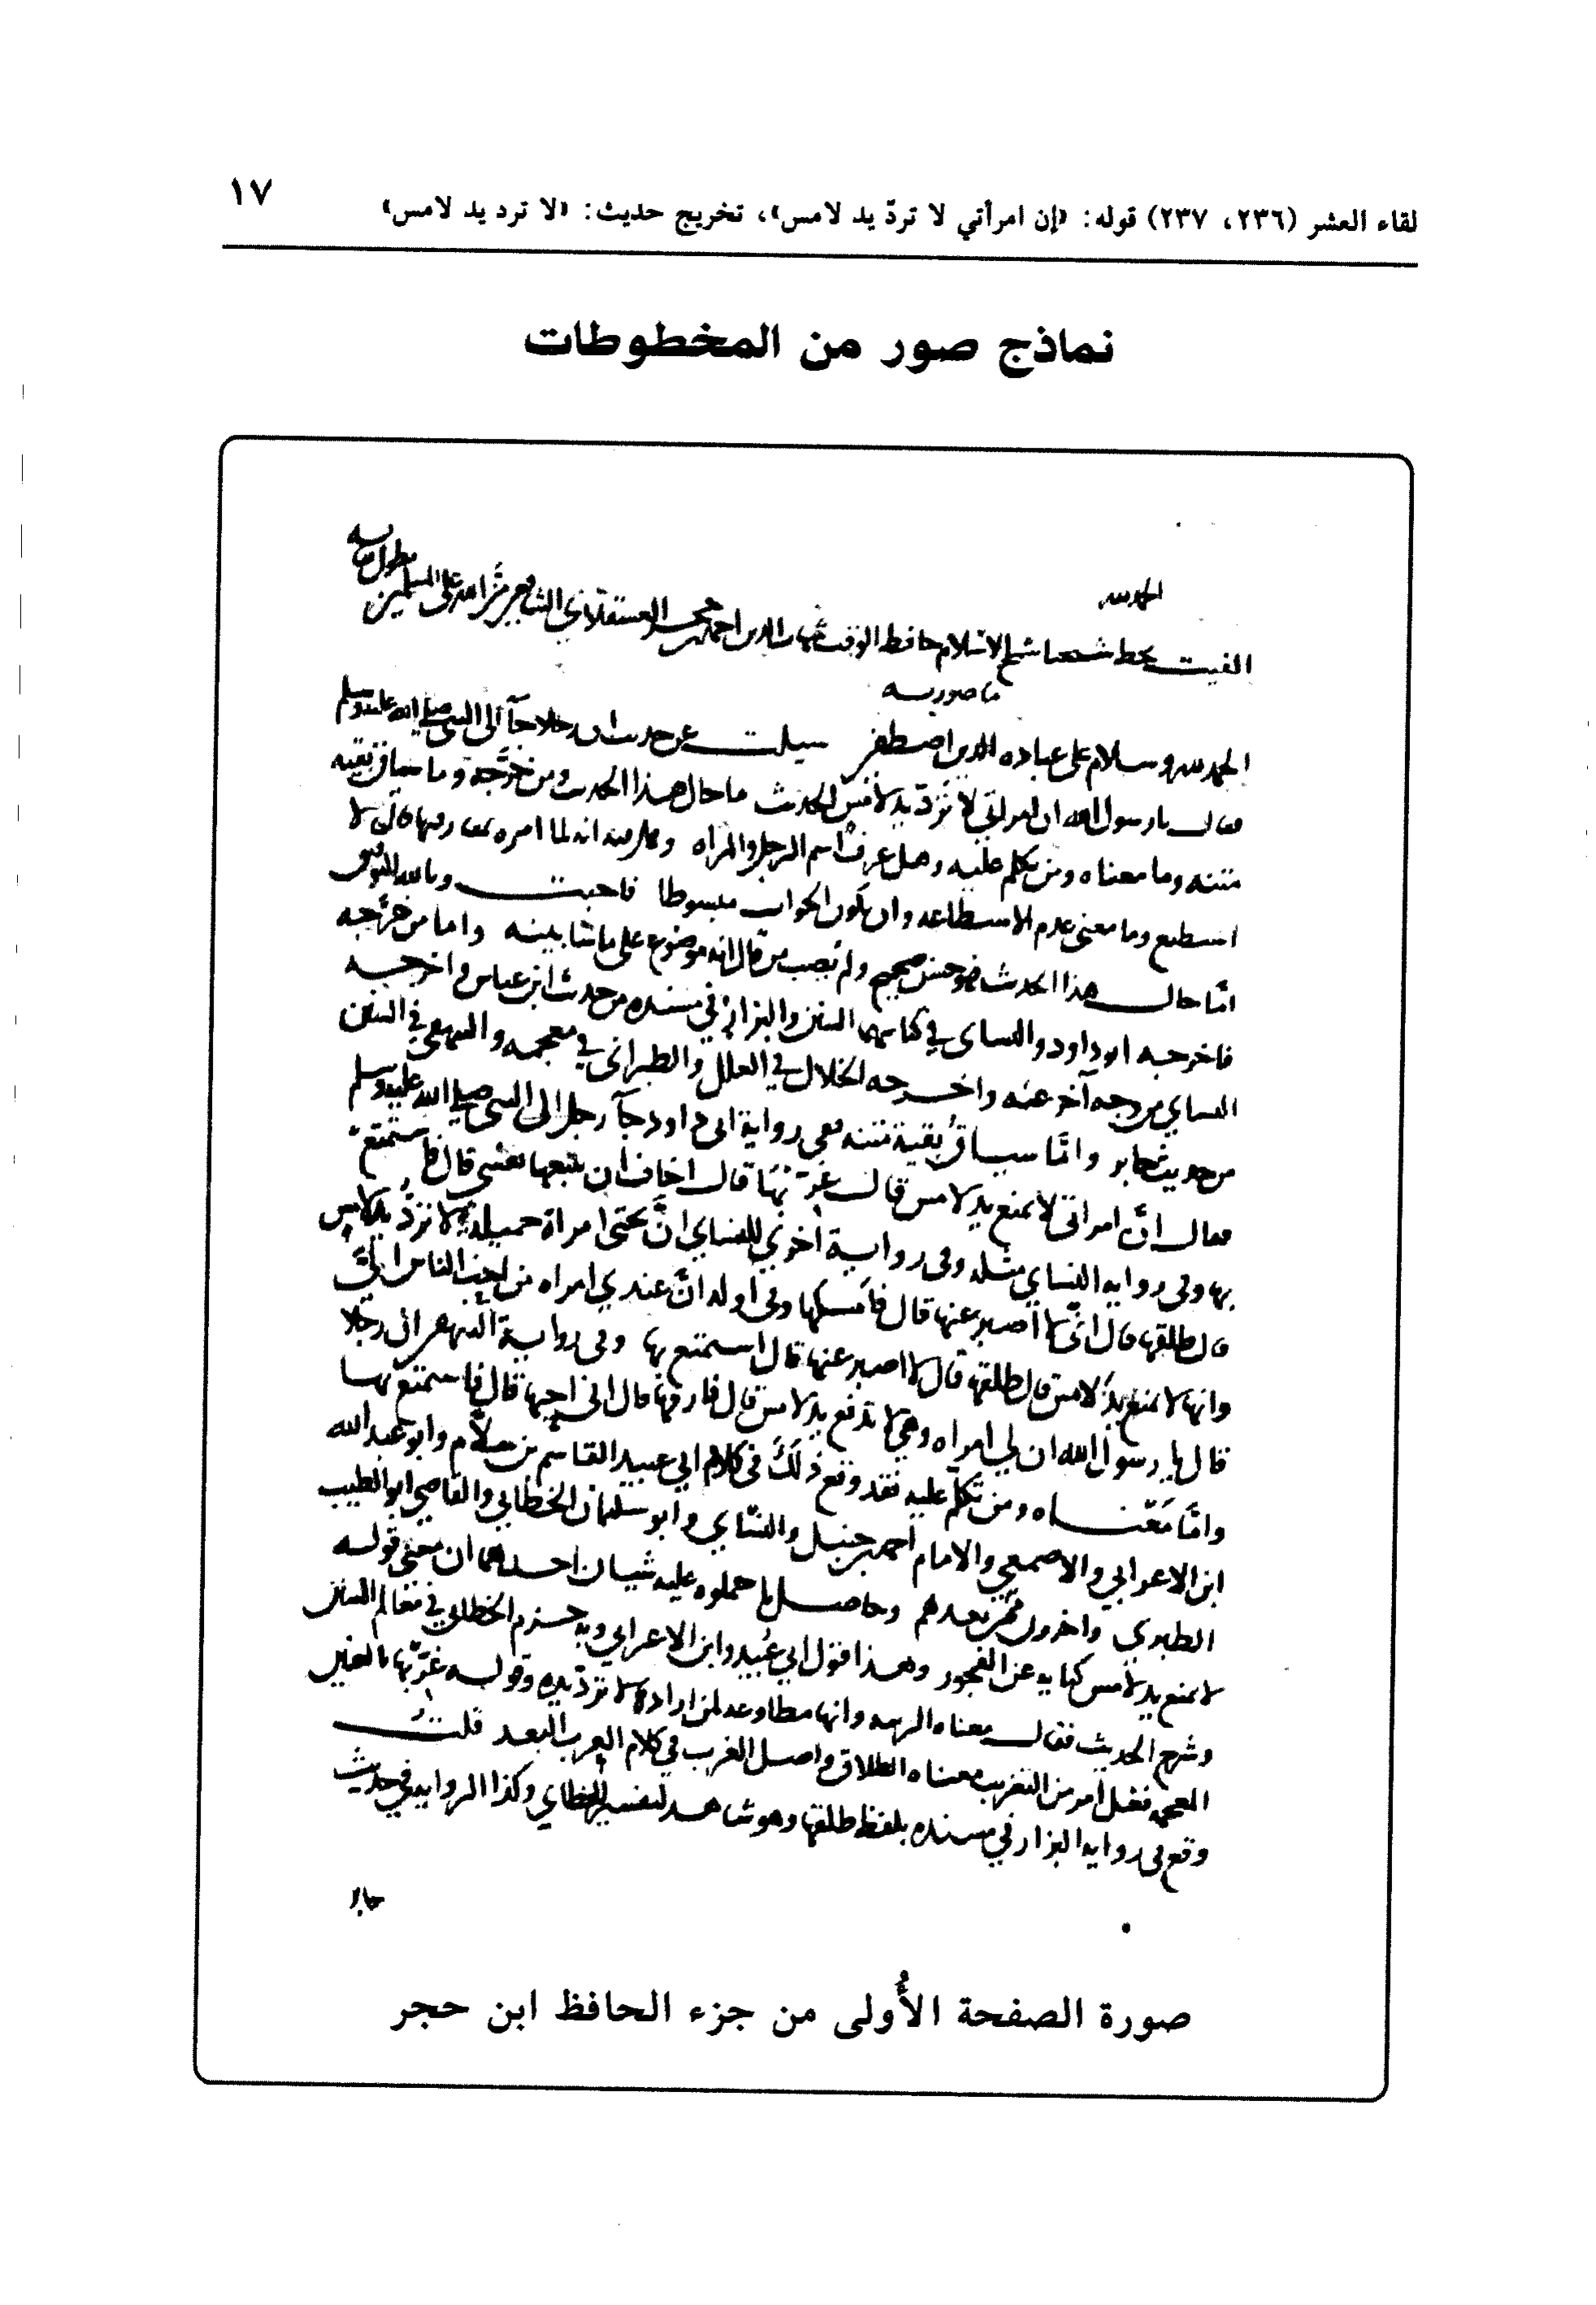 لقاء العشر (٢٣٦، ٢٣٧) قوله: «إن امرأتي لا تردّ يد لامس»، تخريج حديث: «لا ترد يد لامس»
١٧
نماذج صور من المخطوطات
الحمد لله
الفيت بخط شيخنا شيخ الاسلام حافظ الوقت شهاب الدين احمد بن حجر العسقلاني الشافعي
ما صورته
الحمد لله وسلام على عباده الذين اصطفى سيلت عن حديث ان رجلا جآ الى النبي صلى الله عليه وسلم
فقال يا رسول الله ان امراتي لا تَرُدّ يد لامس الحديث ما حال هذا الحديث ومن خرَّجه وما سياق بقيه
متنه وما معناه ومن تكلم عليه وهل عرف اسم الرجل والمراه انه لما امره بمفارقتها قال لا
استطيع وما معنى عدم الاستطاعه وان يكون الجواب مبسوطا فاجبت وبالله التوفيق
امّا حال هذا الحديث فهو حسن صحيح ولم يصب من قال انه موضوع على ما سأبينه واما من خرَّجه
فاخرجه ابو داود والنساي في كتابيهما السنن والبزار في مسنده من حديث ابن عباس واخرجه
النساي من وجه آخر عنه واخرجه الخلال في العلل والطبراني في معجمه والبيهقي في السنن
من حديث جابر وامّا سياق بقية متنه ففي رواية ابي داود جآ رجل الى النبي صلى الله عليه وسلم
فقال انّ امراتي لا تمنع يد لامس قال غَرِّبْهَا قال اخاف ان تتبعها نفسي قال فاستمتع
بها وفي روايه النساي مثله وفي رواية أخرى للنساي انَّ تحتي امراة جميلة لا تردّ يد لامس
قال طلقها قال انّي لا أصبر عنها قال فأمسكها وفي أوله انّ عندي امراه من احب الناس اليّ
وانها لا تمنع يد لامس قال طلقها قال لا اصبر عنها قال استمتع بها وفي رواية البيهقي ان رجلا
قال يا رسول الله ان لي امراه وهي لا تدفع يد لامس قال فارقها قال اني احبها قال فاستمتع بها
وامَّا مَعْناه ومن تكلّم عليه فقد وقع ذلك في كلام ابي عبيد القاسم بن سلّام وابو عبد الله
ابن الاعرابي والاصمعي والامام احمد بن حنبل والنساي وابو سليمان الخطابي والقاضي ابو الطيب
الطبري واخرون ممّن بعدهم وحاصل ما حملوه عليه شيان احدهما ان معنى قوله
لا تمنع يد لامس كنايه عن الفجور وهذا قول ابي عُبيد وابن الاعرابي وبه جزم الخطابي في معالم السنن
وشرح الحديث فقال معناه الريبه وانها مطاوعه لمن ارادها لا تردّ يده وقوله غرّبها بالغين
المعجمه فعل أمر من التغريب معناه الطلاق واصل الغرب في كلام العرب البعد قلت
وقع في روايه البزار في مسنده بلفظ طلقها وهو شاهد لتفسير الخطابي وكذا الروايه في حديث
جابر
صورة الصفحة الأُولى من جزء الحافظ ابن حجر